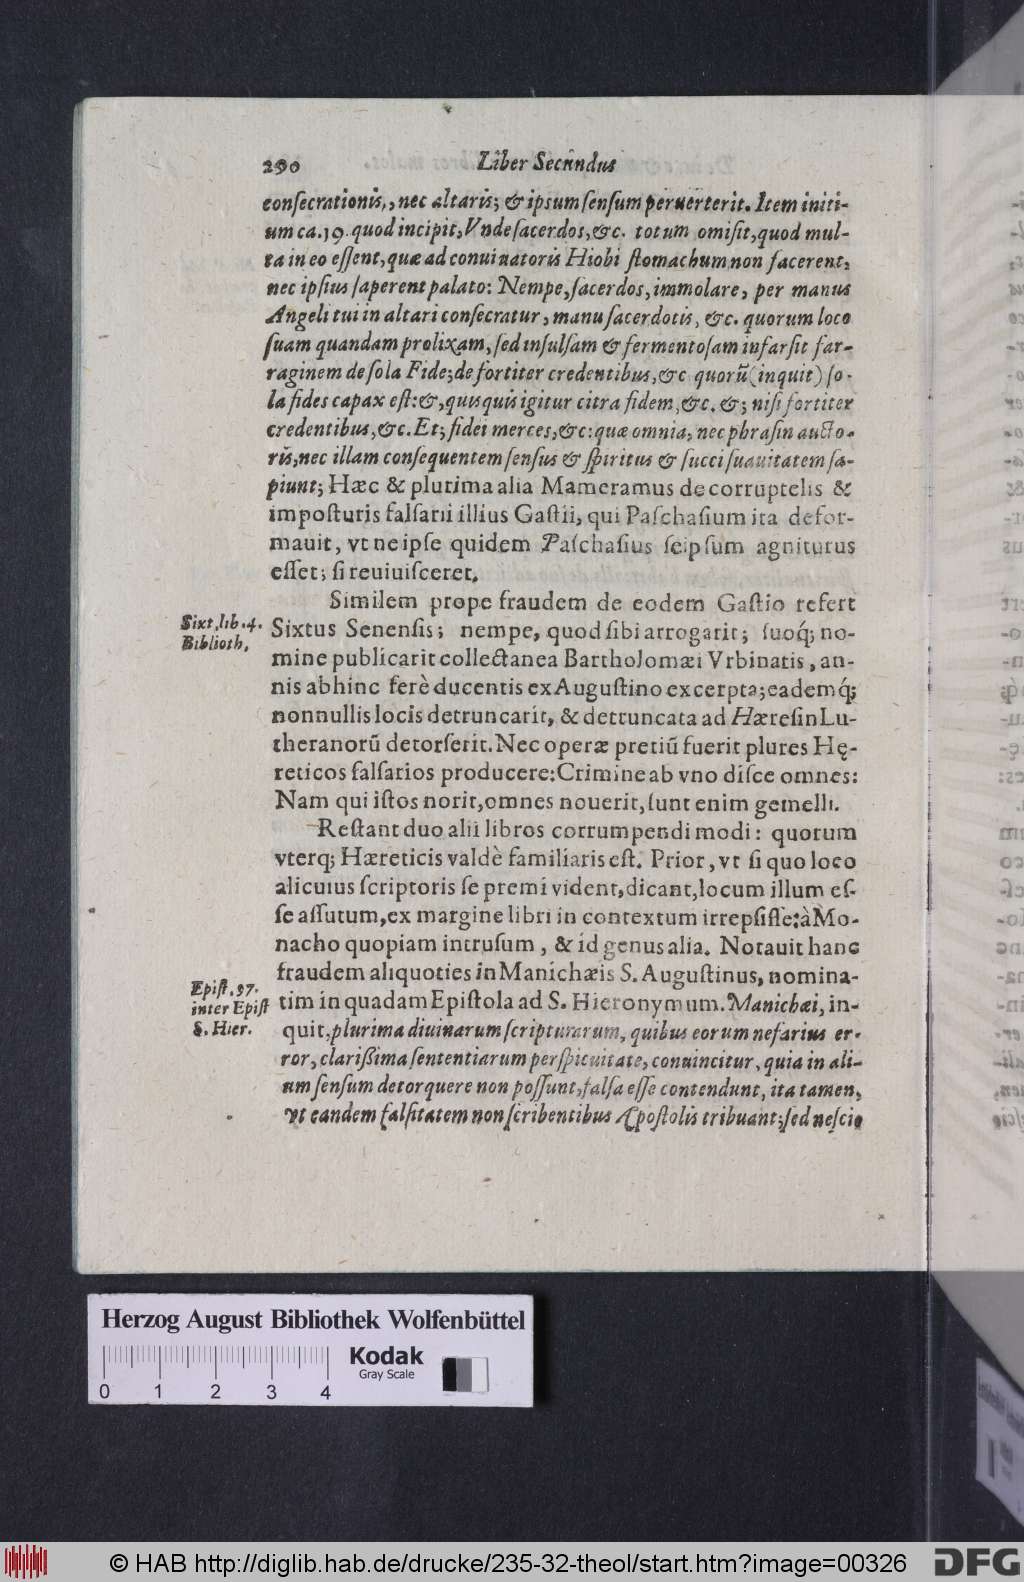 290 Liber Secundus
conſecrationis,, nec altaris; & ipsum ſenſum peruerterit. Item initi-
um ca. 19. quod incipit, Vnde ſacerdos, &c. totum omiſit, quod mul-
ta in eo eſſent, quæ ad conuinatoris Hiobi ſtomachum non facerent,
nec ipſius ſaperent palato: Nempe, ſacerdos, immolare, per manus
Angeli tui in altari conſecratur, manu ſacerdotis, &c. quorum loco
ſuam quandam prolixam, ſed inſulſam & fermentoſam infarſit far-
raginem de ſola Fide; de fortiter credentibus, &c quorũ (inquit) ſo-
la fides capax eſt: &, quisquis igitur citra fidem, &c. &; niſi fortiter
credentibus, &c. Et; fidei merces, &c: quæ omnia, nec phraſin aucto-
ris, nec illam conſequentem ſenſus & ſpiritus & ſucci ſuauitatem ſa-
piunt; Hæc & plurima alia Mameramus de corruptelis &
impoſturis falſarii illius Gaſtii, qui Paſchaſium ita defor-
mauit, vt ne ipſe quidem Paſchaſius ſeipſum agniturus
eſſet; ſi reuiuiſceret.
Similem prope fraudem de eodem Gaſtio refert
Sixt. lib. 4.
Biblioth,
Sixtus Senenſis; nempe, quod ſibi arrogarit; ſuoq́; no-
mine publicarit collectanea Bartholomæi Vrbinatis, an-
nis abhinc ferè ducentis ex Auguſtino excerpta; eademq́;
nonnullis locis detruncarit, & detruncata ad Hæreſin Lu-
theranorũ detorſerit. Nec operæ pretiũ fuerit plures Hę-
reticos falſarios producere: Crimine ab vno diſce omnes:
Nam qui iſtos norit, omnes nouerit, ſunt enim gemelli.
Reſtant duo alii libros corrumpendi modi: quorum
vterq; Hæreticis valdè familiaris eſt. Prior, vt ſi quo loco
alicuius ſcriptoris ſe premi vident, dicant, locum illum eſ-
ſe aſſutum, ex margine libri in contextum irrepſiſſe: à Mo-
nacho quopiam intruſum, & id genus alia. Notauit hanc
fraudem aliquoties in Manichæis S. Auguſtinus, nomina-
Epiſt. 97.
inter Epiſt
S. Hier.
tim in quadam Epiſtola ad S. Hieronymum. Manichæi, in-
quit, plurima diuinarum ſcripturarum, quibus eorum nefarius er-
ror, clariſſima ſententiarum perſpicuitate, conuincitur, quia in ali-
um ſenſum detorquere non poſſunt, falſa eſſe contendunt, ita tamen,
vt eandem falſitatem non ſcribentibus Apoſtolis tribuant; ſed neſcio
Herzog August Bibliothek Wolfenbüttel
Kodak
Gray Scale
0 1 2 3 4
© HAB http://diglib.hab.de/drucke/235-32-theol/start.htm?image=00326
DFG